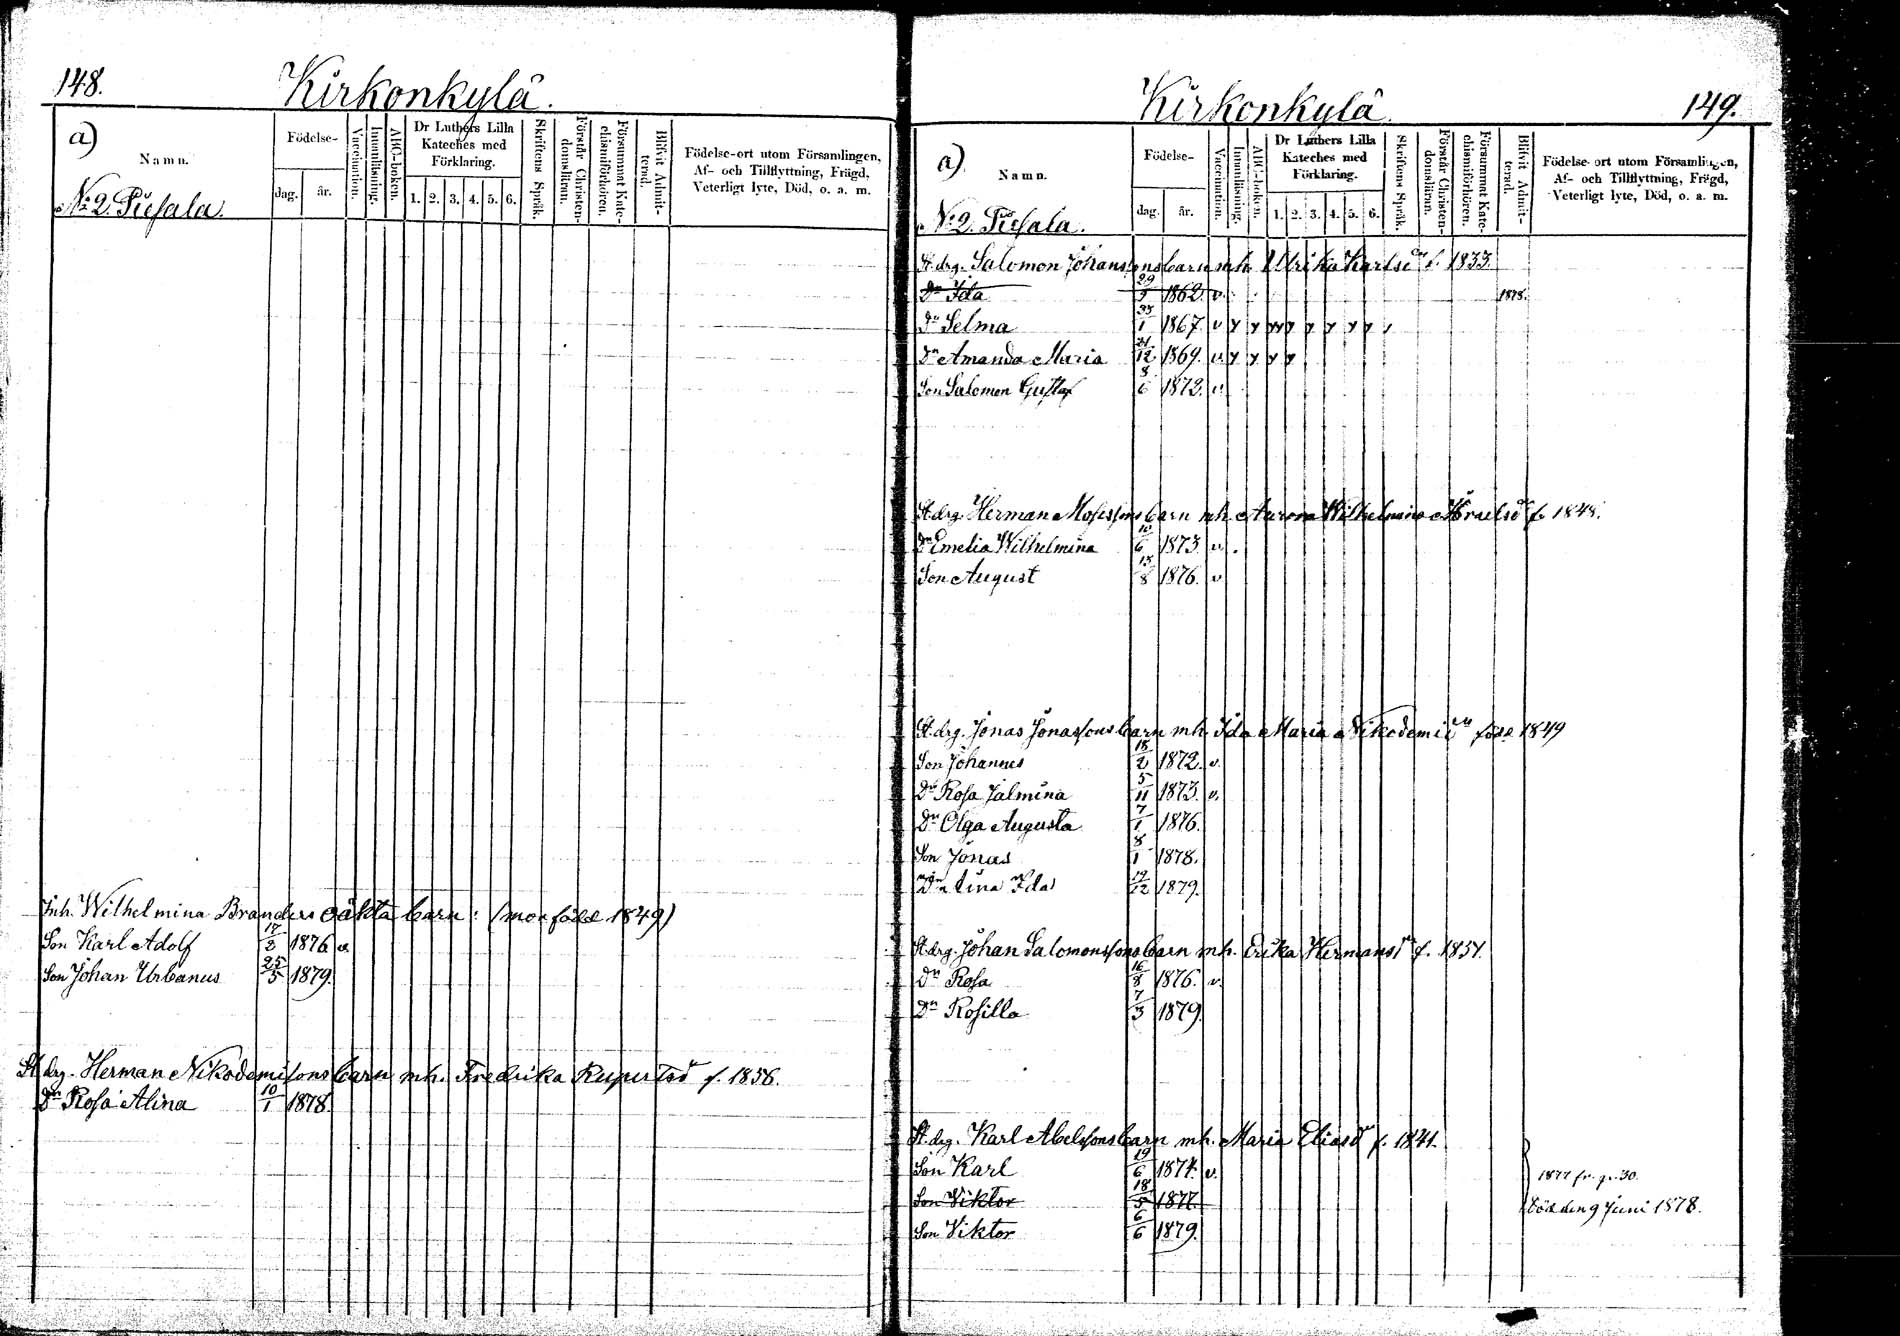 148.
Kirkonkylä.
a)
Namn.
Födelse-
dag. år.
Vaccination.
Innanläsning.
ABC-boken.
Dr Luthers Lilla
Kateches med
Förklaring.
1. 2. 3. 4. 5. 6.
Skriftens Språk.
Förstår Christen-
domsläran.
Försummat Kate-
chismiförhören.
Blifvit Admit-
terad.
Födelse-ort utom Församlingen,
Af- och Tillflyttning, Frägd,
Veterligt lyte, Död, o. a. m.
No 2. Piisala.
Inh. Wilhelmina Branders oäkta barn: (mor född 1849)
Son Karl Adolf 17/2 1876 v.
Son Johan Urbanus 25/5 1879.
St. drg. Herman Nikodemisons barn mh. Fredrika Rupertsdr f. 1856.
Dn Rosa Alina 10/1 1878.
Kirkonkylä
149.
a)
Namn.
Födelse-
dag. år.
Vaccination.
Innanläsning.
ABC-boken.
Dr Luthers Lilla
Kateches med
Förklaring.
1. 2. 3. 4. 5. 6.
Skriftens Språk.
Förstår Christen-
domsläran.
Försummat Kate-
chismiförhören.
Blifvit Admit-
terad.
Födelse-ort utom Församlingen,
Af- och Tillflyttning, Frägd,
Veterligt lyte, Död, o. a. m.
No 2. Piisala.
St. drg. Salomon Johanssons barn mh. Ulrika Karlsdr f. 1833.
Dn Ida 29/5 1862. v. 1878.
Dn Selma 1 1867. v
Dn Amanda Maria 21/12 1869. v.
Son Salomon Gustaf 8/6 1872. v.
St. drg. Herman Mosessons barn mh. Aurora Wilhelmina Israelsdr f. 1848.
Dn Emelia Wilhelmina 6 1873 v.
Son August 8 1876. v
St. drg. Jonas Jonassons barn mh. Ida Maria Nikodemidr född 1849
Son Johannes 18/2 1872. v.
Dn Rosa Jalmina 5/11 1873. v.
Dn Olga Augusta 7/1 1876.
Son Jonas 8/1 1878.
Dn Lina Ida 19/12 1879.
St. drg. Johan Salomonssons barn mh. Erika Hermansdr f. 1851.
Dn Rosa 16/8 1876. v.
Dn Rosilla 7/3 1879
St. drg. Karl Abelssons barn mh. Maria Eliasdr f. 1841.
Son Karl 19/6 1874. v. 1877 fr. p. 30.
Son Viktor 18/5 1877. död den 9 Juni 1878.
Son Viktor 6/6 1879.